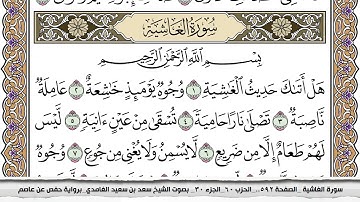 سُورَةُ الغَاشِيَةِ
بِسْمِ اللَّهِ الرَّحْمَٰنِ الرَّحِيمِ
هَلْ أَتَىٰكَ حَدِيثُ الْغَٰشِيَةِ ١ وُجُوهٌ يَوْمَئِذٍ خَٰشِعَةٌ ٢ عَامِلَةٌ
نَّاصِبَةٌ ٣ تَصْلَىٰ نَارًا حَامِيَةً ٤ تُسْقَىٰ مِنْ عَيْنٍ ءَانِيَةٍ ٥ لَّيْسَ
لَهُمْ طَعَامٌ إِلَّا مِن ضَرِيعٍ ٦ لَّا يُسْمِنُ وَلَا يُغْنِي مِن جُوعٍ ٧ وُجُوهٌ
سورة الغاشية _الصفحة ٥٩٢_ الحزب ٦٠_الجزء ٣٠_ بصوت الشيخ سعد بن سعيد الغامدي_برواية حفص عن عاصم